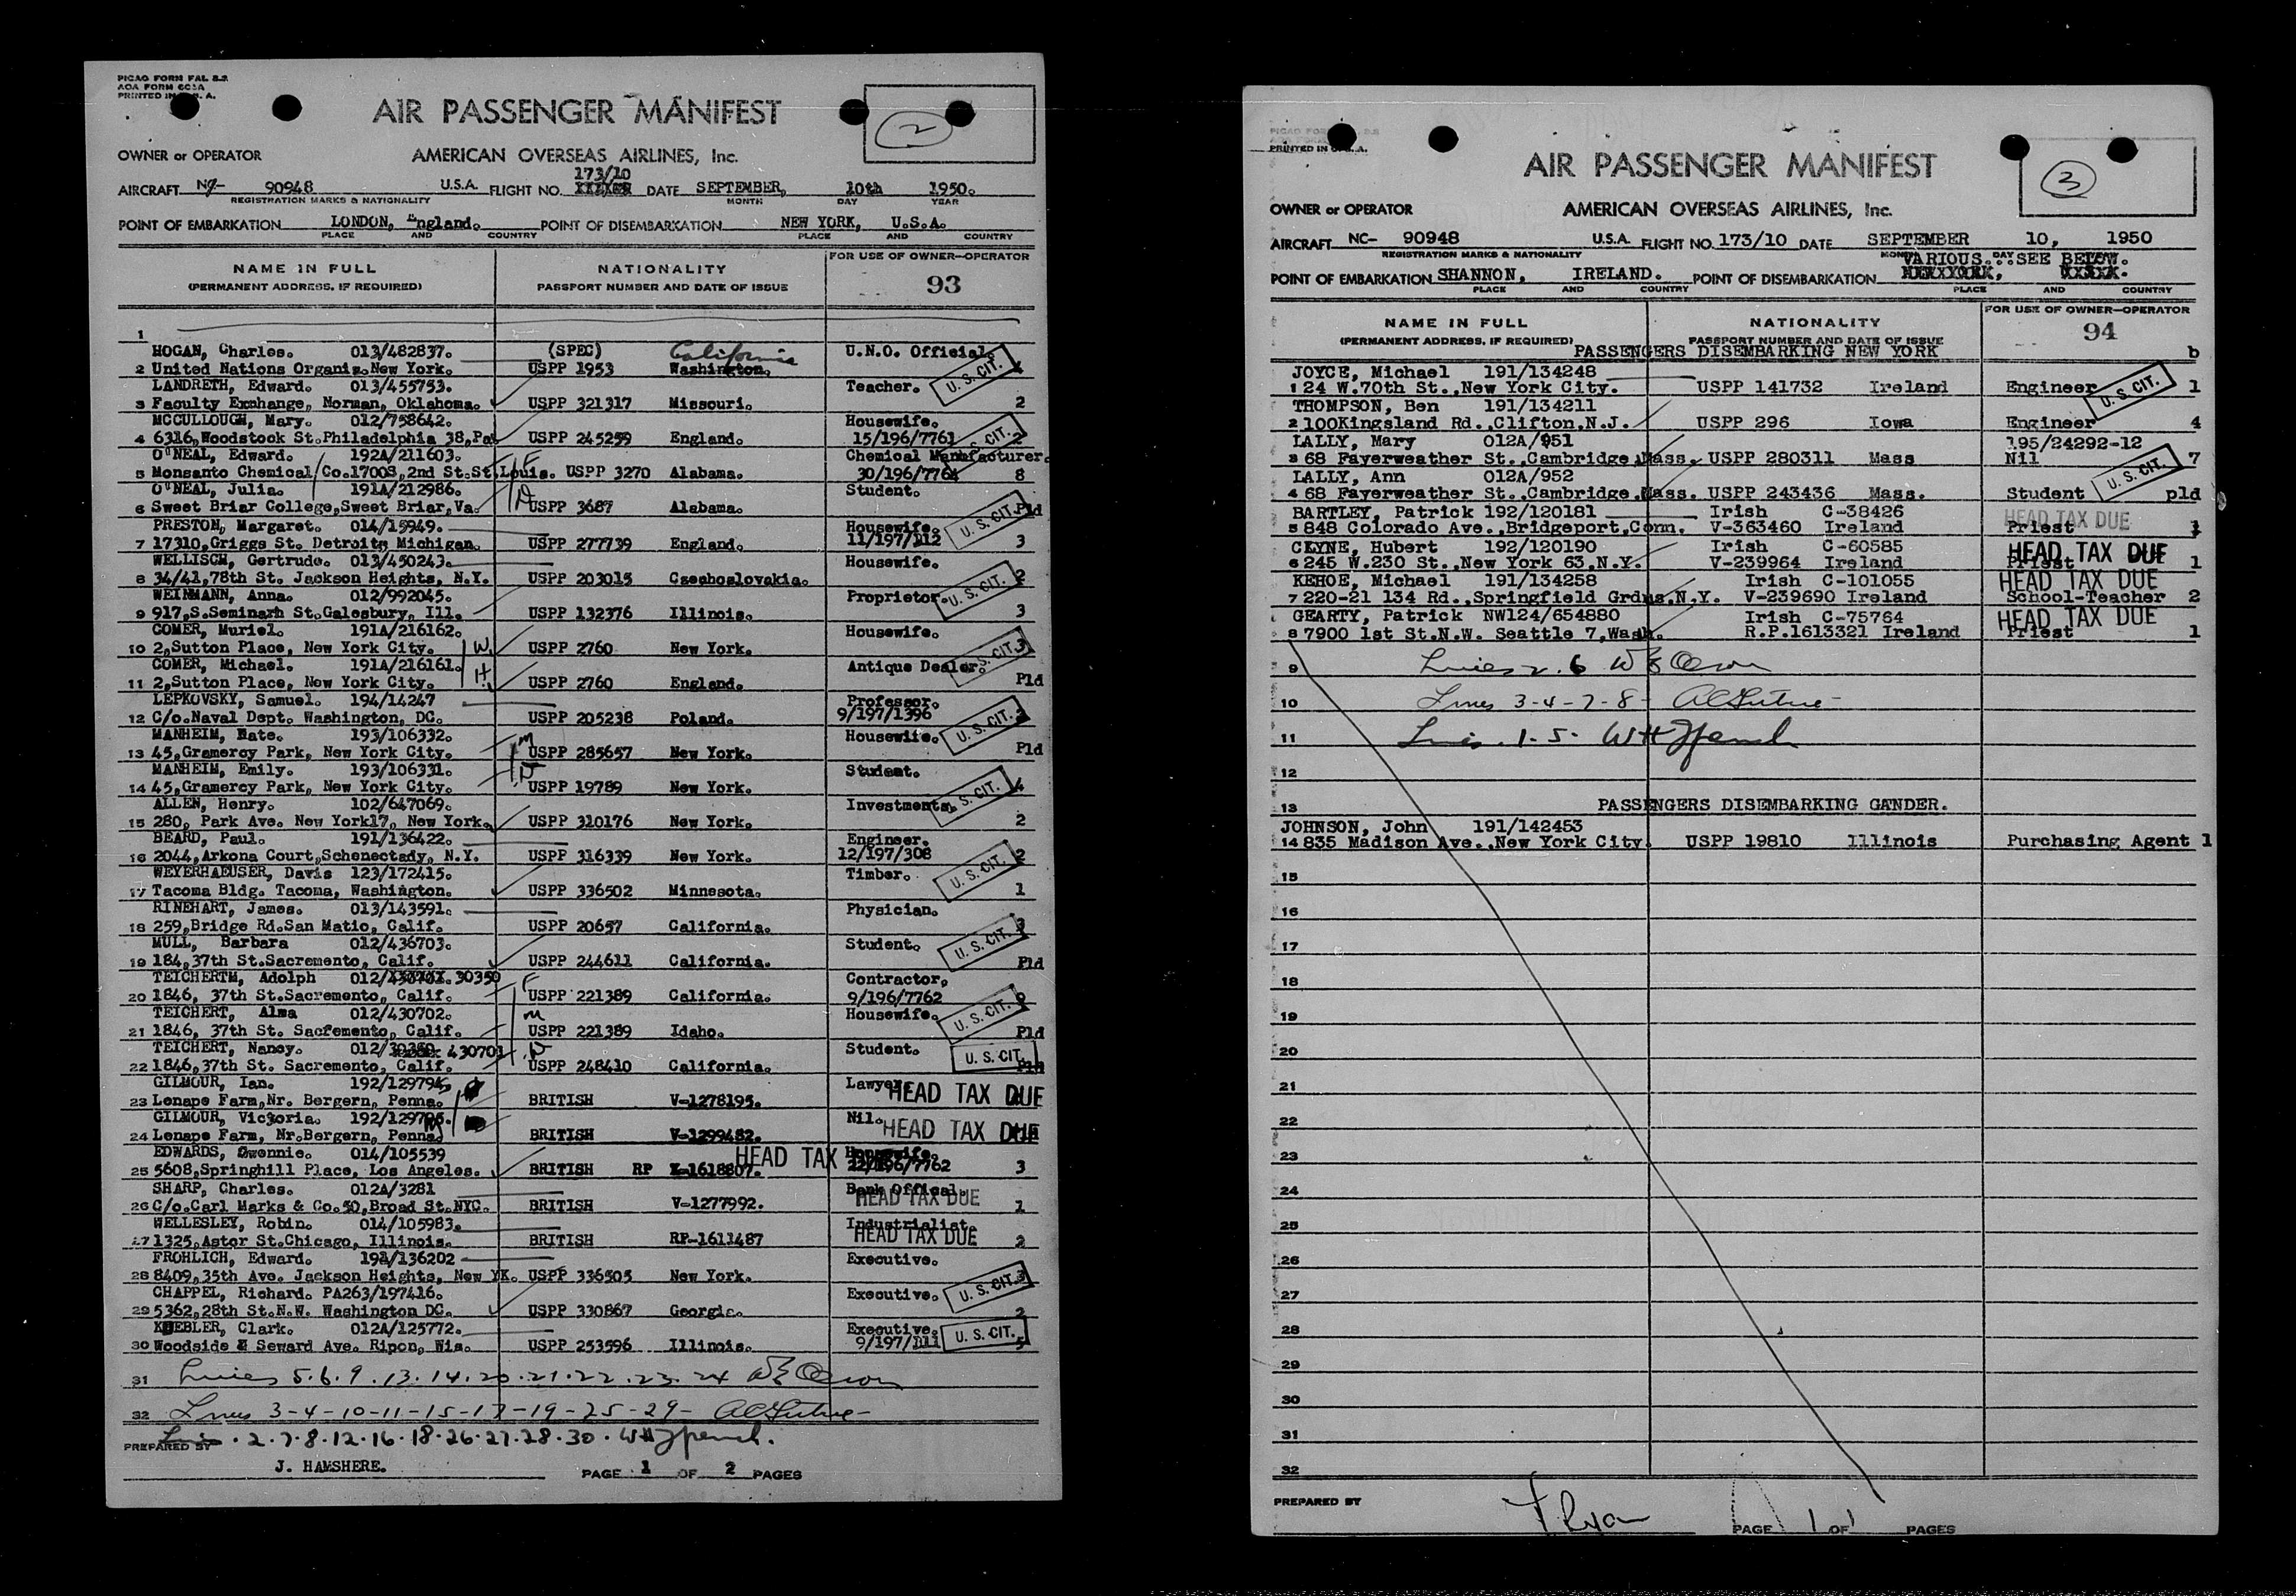 PRINTED IN U.S.A.
AIR PASSENGER MANIFEST
2
OWNER or OPERATOR AMERICAN OVERSEAS AIRLINES, Inc.
173/10
AIRCRAFT 90948 U.S.A. FLIGHT NO. DATE SEPTEMBER, 10th 1950.
REGISTRATION MARKS & NATIONALITY MONTH DAY YEAR
POINT OF EMBARKATION LONDON, England. POINT OF DISEMBARKATION NEW YORK, U.S.A.
PLACE AND COUNTRY PLACE AND COUNTRY
FOR USE OF OWNER—OPERATOR
NAME IN FULL NATIONALITY
(PERMANENT ADDRESS, IF REQUIRED) PASSPORT NUMBER AND DATE OF ISSUE 93
1
HOGAN, Charles. 013/482837. (SPEC) California U.N.O. Official.
2 United Nations Organis. New York. USPP 1953 Washington. U. S. CIT.
LANDRETH, Edward. 013/455753. Teacher.
3 Faculty Exchange, Norman, Oklahoma. USPP 321317 Missouri. 2
MCCULLOUGH, Mary. 012/758642. Housewife.
4 6316, Woodstock St. Philadelphia 38, Pa. USPP 245259 England. 15/196/7761 U. S. CIT.
O'NEAL, Edward. 192A/211603. Chemical Manufacturer.
5 Monsanto Chemical Co. 1700S, 2nd St. St. Louis. USPP 3270 Alabama. 30/196/7764 8
O'NEAL, Julia. 191A/212986. Student.
6 Sweet Briar College, Sweet Briar, Va. USPP 3687 Alabama. U. S. CIT. Pld
PRESTON, Margaret. 014/15949. Housewife.
7 17310, Griggs St. Detroit, Michigan. USPP 277739 England. 11/197/1112 3
WELLISCH, Gertrude. 013/450243. Housewife.
8 34/41, 78th St. Jackson Heights, N.Y. USPP 203015 Czechoslovakia. 2
WEINMANN, Anna. 012/992045. Proprietor. U. S. CIT.
9 917, S. Seminarh St. Galesbury, Ill. USPP 132376 Illinois. 3
COMER, Muriel. 191A/216162. Housewife.
10 2, Sutton Place, New York City. W. USPP 2760 New York. 3
COMER, Michael. 191A/216161. Antique Dealer. U. S. CIT.
11 2, Sutton Place, New York City. H. USPP 2760 England. Pld
LEPKOVSKY, Samuel. 194/14247 Professor.
12 C/o. Naval Dept. Washington, DC. USPP 205238 Poland. 9/197/1396
MANHEIM, Nate. 193/106332. Housewife. U. S. CIT.
13 45, Gramercy Park, New York City. M USPP 285657 New York. Pld
MANHEIM, Emily. 193/106331. Student.
14 45, Gramercy Park, New York City. D USPP 19789 New York. 4
ALLEN, Henry. 102/647069. Investments. U. S. CIT.
15 280, Park Ave. New York17, New York. USPP 310176 New York. 2
BEARD, Paul. 191/136422. Engineer.
16 2044, Arkona Court, Schenectady, N.Y. USPP 316339 New York. 12/197/308 2
WEYERHAEUSER, Davis 123/172415. Timber. U. S. CIT.
17 Tacoma Bldg. Tacoma, Washington. USPP 336502 Minnesota. 1
RINEHART, James. 013/143591. Physician.
18 259, Bridge Rd. San Matio, Calif. USPP 20657 California.
MULL, Barbara 012/436703. Student. U. S. CIT.
19 184, 37th St. Sacremento, Calif. USPP 244611 California. Pld
TEICHERTM, Adolph 012/ 30350 F Contractor,
20 1846, 37th St. Sacremento, Calif. USPP 221389 California. 9/196/7762
TEICHERT, Alma 012/430702. M Housewife. U. S. CIT.
21 1846, 37th St. Sacremento, Calif. USPP 221389 Idaho. Pld
TEICHERT, Nancy. 012/ 430701 D Student.
22 1846, 37th St. Sacremento, Calif. USPP 248410 California. U. S. CIT.
GILMOUR, Ian. Lawyer.
23 Lenape Farm, Nr. Bergern, Penna. BRITISH V-1278195. HEAD TAX DUE
GILMOUR, Victoria. Nil.
24 Lenape Farm, Nr. Bergern, Penna. BRITISH V-1299482. HEAD TAX DUE
EDWARDS, Gwennie. 014/105539 HEAD TAX Housewife.
25 5608, Springhill Place, Los Angeles. BRITISH RP 3
SHARP, Charles. 012A/3281 Bank Offical.
26 C/o. Carl Marks & Co. 50, Broad St. NYC. BRITISH V-1277992. HEAD TAX DUE 1
WELLESLEY, Robin. 014/105983. Industrialist.
27 1325, Astor St. Chicago, Illinois. BRITISH RP-1611487 HEAD TAX DUE 2
FROHLICH, Edward. Executive.
28 8409, 35th Ave. Jackson Heights, New YK. USPP 336505 New York. 3
CHAPPEL, Richard. PA263/197416. Executive. U. S. CIT.
29 5362, 28th St. N.W. Washington DC. USPP 330867 Georgia. 2
KOEBLER, Clark. 012A/125772. Executive.
30 Woodside & Seward Ave. Ripon, Wis. USPP 253596 Illinois. 9/197/1111 U. S. CIT. 5
31 Lines 5.6.9.13.14.20.21.22.23.24
32 Lines 3-4-10-11-15-17-19-25-29-
PREPARED BY Lines .2.7.8.12.16.18.26.27.28.30.
J. HAMSHERE. PAGE 1 OF 2 PAGES
PRINTED IN U.S.A.
AIR PASSENGER MANIFEST
3
OWNER or OPERATOR AMERICAN OVERSEAS AIRLINES, Inc.
AIRCRAFT NC- 90948 U.S.A. FLIGHT NO. 173/10 DATE SEPTEMBER 10, 1950
REGISTRATION MARKS & NATIONALITY MONTH DAY YEAR
VARIOUS...SEE BELOW.
POINT OF EMBARKATION SHANNON, IRELAND. POINT OF DISEMBARKATION
PLACE AND COUNTRY PLACE AND COUNTRY
FOR USE OF OWNER—OPERATOR
NAME IN FULL NATIONALITY 94
(PERMANENT ADDRESS, IF REQUIRED) PASSPORT NUMBER AND DATE OF ISSUE
PASSENGERS DISEMBARKING NEW YORK b
JOYCE, Michael 191/134248
1 24 W.70th St., New York City. USPP 141732 Ireland Engineer U. S. CIT. 1
THOMPSON, Ben 191/134211
2 100Kingsland Rd., Clifton, N.J. USPP 296 Iowa Engineer 4
LALLY, Mary 012A/951 195/24292-12
3 68 Fayerweather St., Cambridge, Mass. USPP 280311 Mass Nil 7
LALLY, Ann 012A/952 U. S. CIT.
4 68 Fayerweather St., Cambridge, Mass. USPP 243436 Mass. Student pld
BARTLEY, Patrick 192/120181 Irish C-38426 HEAD TAX DUE
5 848 Colorado Ave., Bridgeport, Conn. V-363460 Ireland Priest 1
CLYNE, Hubert 192/120190 Irish C-60585 HEAD TAX DUE
6 245 W.230 St., New York 63, N.Y. V-239964 Ireland Priest 1
KEHOE, Michael 191/134258 Irish C-101055 HEAD TAX DUE
7 220-21 134 Rd., Springfield Grdns, N.Y. V-239690 Ireland School-Teacher 2
GEARTY, Patrick NW124/654880 Irish C-75764 HEAD TAX DUE
8 7900 1st St. N.W. Seattle 7, Wash. R.P.1613321 Ireland Priest 1
9 Lines 2. 6
10 Lines 3-4-7-8-
11 Lines. 1-5-
12
13 PASSENGERS DISEMBARKING GANDER.
JOHNSON, John 191/142453
14 835 Madison Ave., New York City. USPP 19810 Illinois Purchasing Agent 1
15
16
17
18
19
20
21
22
23
24
25
26
27
28
29
30
31
32
PREPARED BY PAGE 1 OF 1 PAGES